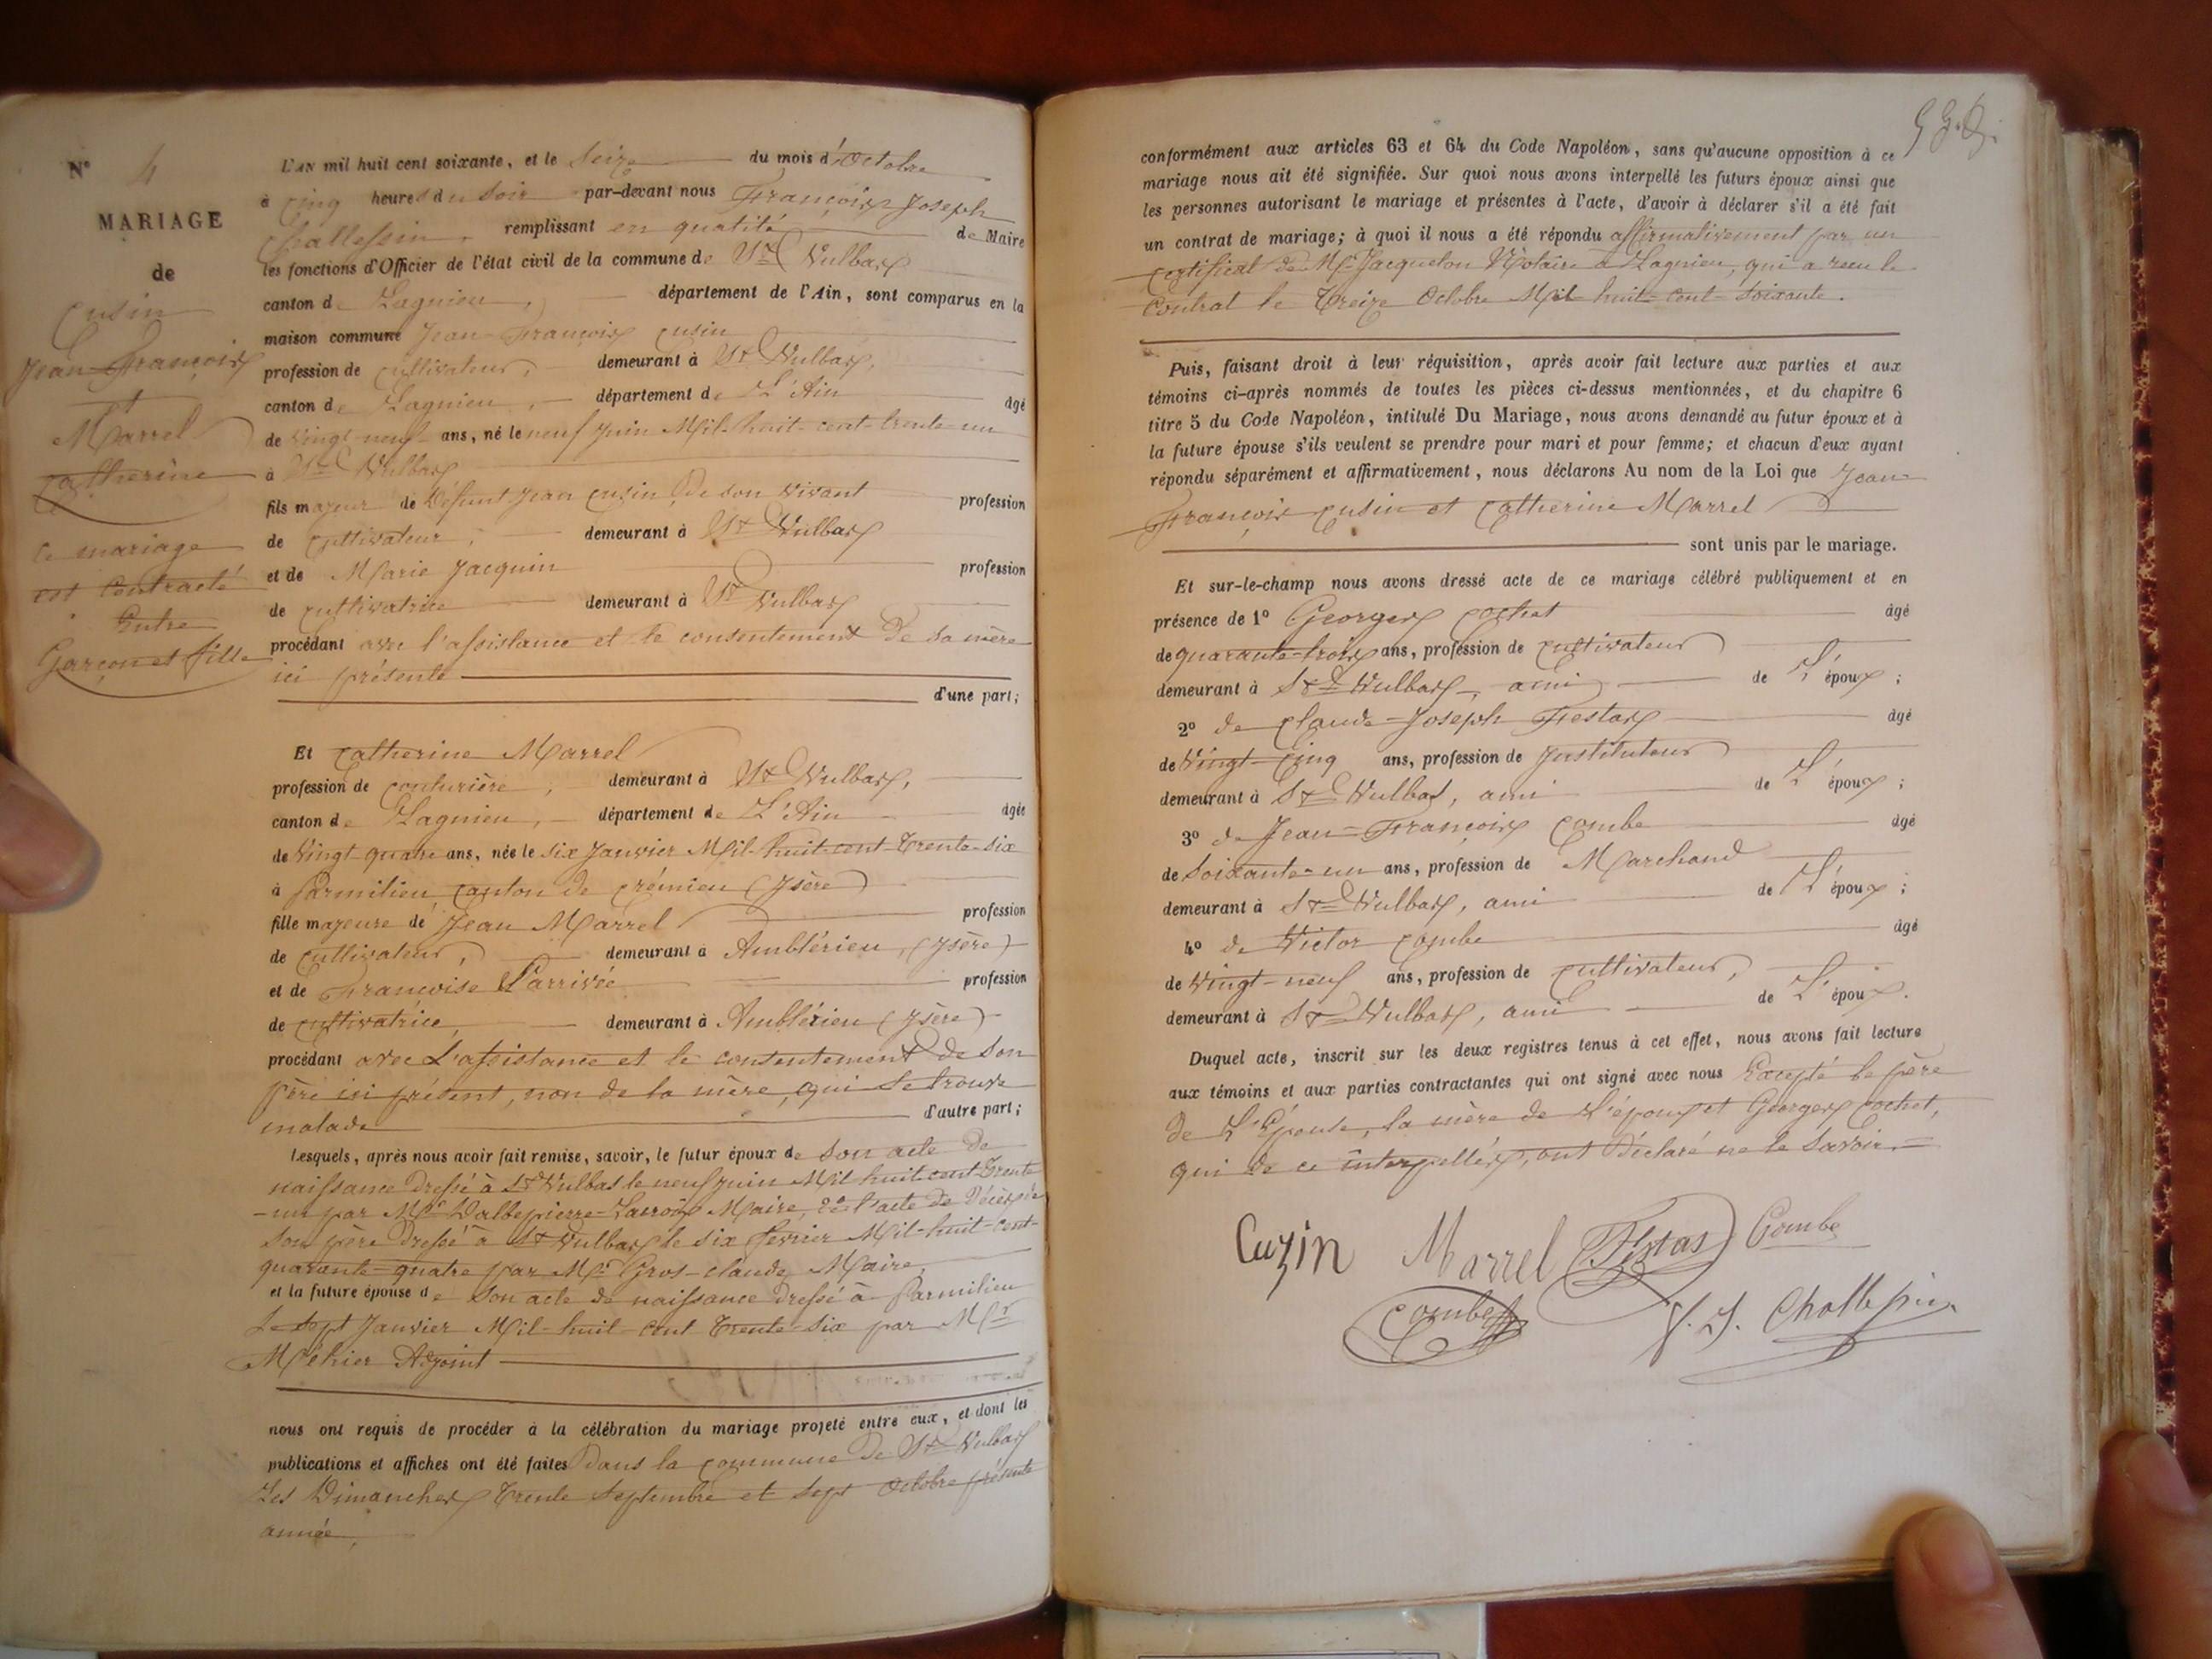 N° 4
MARIAGE
de
Cusin
Jean-François
et
Marrel
Catherine
Ce mariage
est contracté
Entre
Garçon et fille
L'AN mil huit cent soixante, et le Seize du mois d'Octobre
à Cinq heures du soir par-devant nous François Joseph
Challespin, remplissant en qualité de Maire
les fonctions d'Officier de l'état civil de la commune de St Vulbas
canton de Lagnieu, département de l'Ain, sont comparus en la
maison commune Jean-François Cusin
profession de Cultivateur, demeurant à St Vulbas,
canton de Lagnieu, département de L'Ain âgé
de vingt-neuf ans, né le neuf Juin Mil-huit-cent-trente-un
à St Vulbas
fils majeur de Défunt Jean Cusin De son vivant profession
de Cultivateur, demeurant à St Vulbas
et de Marie Jacquin profession
de Cultivatrice demeurant à St Vulbas
procédant avec l'assistance et le consentement De sa mère
ici présente
d'une part;
Et Catherine Marrel
profession de Couturière, demeurant à St Vulbas,
canton de Lagnieu, département de L'Ain âgée
de Vingt-quatre ans, née le six Janvier Mil-huit-cent-Trente-six
à Parmilieu, Canton de Crémieu (Isère)
fille majeure de Jean Marrel profession
de Cultivateur, demeurant à Amblérieu, (Isère)
et de Françoise Larrivée profession
de Cultivatrice, demeurant à Amblérieu (Isère)
procédant avec L'assistance et le consentement de son
père ici présent, non de la mère, qui se trouve
malade d'autre part;
Lesquels, après nous avoir fait remise, savoir, le futur époux de son acte de
naissance Dressé à St Vulbas le neuf Juin Mil huit-cent Trente
-un par Mr Dalbepierre-Lacroix Maire, 2° l'acte de Décès de
Son père Dressé à St Vulbas le six février Mil-huit-cent-
quarante-quatre par Mr Gros-Claude, Maire,
et la future épouse de Son acte de naissance Dressé à Parmilieu
Le sept Janvier Mil-huit-cent Trente-six par Mr
Méhier Adjoint
nous ont requis de procéder à la célébration du mariage projeté entre eux, et dont les
publications et affiches ont été faites Dans la Commune De St Vulbas
Les Dimanches Trente Septembre et sept Octobre présente
année,
conformément aux articles 63 et 64 du Code Napoléon, sans qu'aucune opposition à ce
mariage nous ait été signifiée. Sur quoi nous avons interpellé les futurs époux ainsi que
les personnes autorisant le mariage et présentes à l'acte, d'avoir à déclarer s'il a été fait
un contrat de mariage; à quoi il nous a été répondu affirmativement par un
certificat de Me Jacquelou Notaire à Lagnieu, qui a reçu le
Contrat le Treize Octobre Mil huit-cent-Soixante.
Puis, faisant droit à leur réquisition, après avoir fait lecture aux parties et aux
témoins ci-après nommés de toutes les pièces ci-dessus mentionnées, et du chapitre 6
titre 5 du Code Napoléon, intitulé Du Mariage, nous avons demandé au futur époux et à
la future épouse s'ils veulent se prendre pour mari et pour femme; et chacun d'eux ayant
répondu séparément et affirmativement, nous déclarons Au nom de la Loi que Jean-
François Cusin et Catherine Marrel
sont unis par le mariage.
Et sur-le-champ nous avons dressé acte de ce mariage célébré publiquement et en
présence de 1° Georges Cochet âgé
de quarante-trois ans, profession de Cultivateur
demeurant à St Vulbas, ami de L'époux;
2° de Claude-Joseph Festas âgé
de Vingt-Cinq ans, profession de Instituteur
demeurant à St Vulbas, ami de L'époux;
3° de Jean-François Combe âgé
de Soixante-un ans, profession de Marchand
demeurant à St Vulbas, ami de L'époux;
4° de Victor Combe âgé
de Vingt-neuf ans, profession de Cultivateur,
demeurant à St Vulbas, ami de L'époux.
Duquel acte, inscrit sur les deux registres tenus à cet effet, nous avons fait lecture
aux témoins et aux parties contractantes qui ont signé avec nous Excepté le père
de L'Épouse, la mère de L'époux et Georges Cochet,
qui de ce interpellés, ont Déclaré ne le Savoir.
Cuzin Marrel Festas Combe
Combe f. J. Challespin